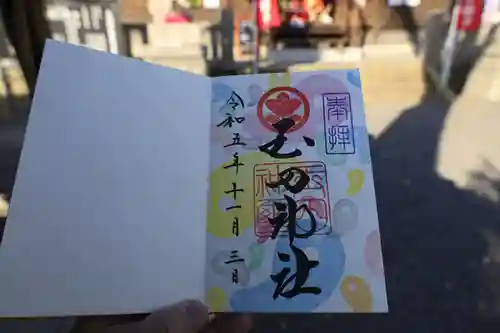 奉拝
玉田神社
令和五年十一月三日